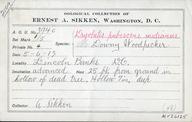 OOLOGICAL COLLECTION OF
ERNEST A. SIKKEN, WASHINGTON, D. C.
A. O. U. No. 394c Dryobates pubescens medianus
Set Mark 1/5 Species: Downy Woodpecker
Private No. 4
Date 5-6-13
Locality Lincoln Banks D.C.
Incubation advanced Nest 25 ft. from ground in
hollow of dead tree, Hollow 7 in. deep
Collector E. Sikken